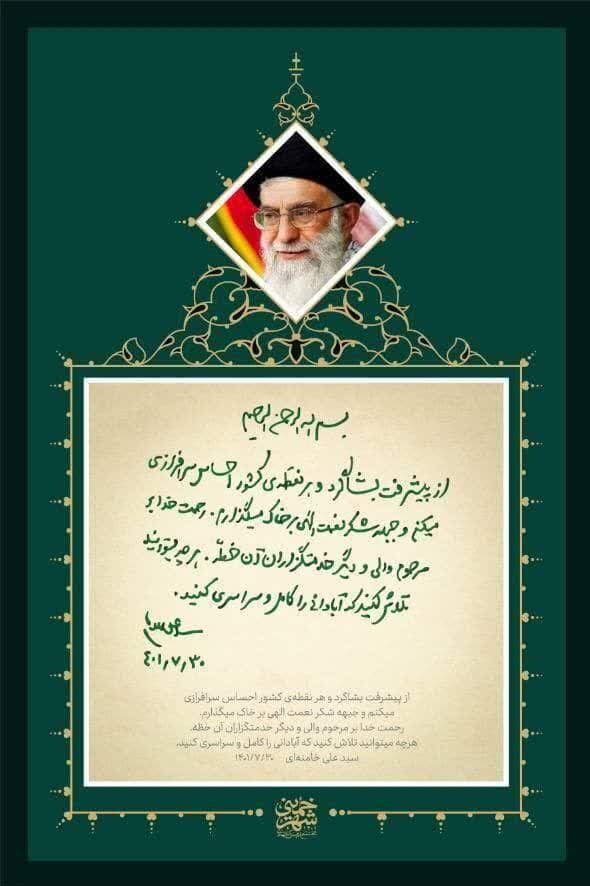 بسم الله الرحمن الرحیم
از پیشرفت بشاگرد و هر نقطه‌ی کشور احساس سرافرازی
میکنم و جبهه شکر نعمت الهی بر خاک میگذارم. رحمت خدا بر
مرحوم والی و دیگر خدمتگزاران آن خطّه. هر چه میتوانید
تلاش کنید که آبادانی را کامل و سراسری کنید.
۴۰۱٫۷٫۳۰
از پیشرفت بشاگرد و هر نقطه‌ی کشور احساس سرافرازی
میکنم و جبهه شکر نعمت الهی بر خاک میگذارم.
رحمت خدا بر مرحوم والی و دیگر خدمتگزاران آن خطه.
هرچه میتوانید تلاش کنید که آبادانی را کامل و سراسری کنید.
سید علی خامنه‌ای ۱۴۰۱/۷/۳۰
خمینی
شهر